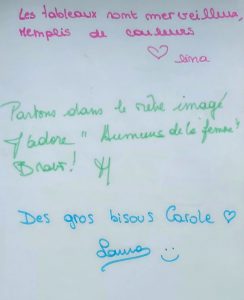 Les tableaux sont merveilleux,
remplis de couleurs
♡ lina
Partons dans le rêve imagé
J'adore " de la femme"
Bravo!
Des gros bisous Carole ♡
Laura :)